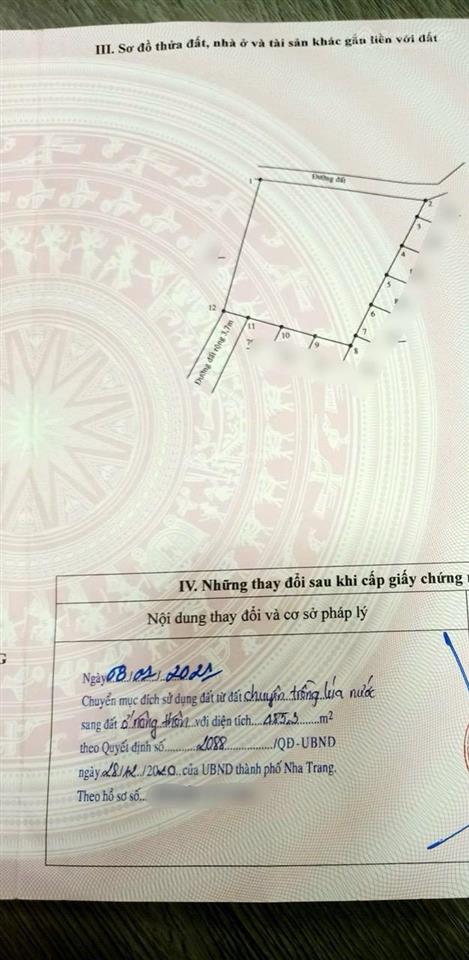 III. Sơ đồ thửa đất, nhà ở và tài sản khác gắn liền với đất
Đường đất
1
2
3
4
5
6
7
8
9
10
11
12
Đường đất rộng 3,7m
IV. Những thay đổi sau khi cấp giấy chứng
Nội dung thay đổi và cơ sở pháp lý
G
Ngày 08/01/2021
Chuyển mục đích sử dụng đất từ đất chuyên trồng lúa nước
sang đất ở nông thôn với diện tích....485,3......m2
theo Quyết định số..........2088............../QĐ-UBND
ngày 28/12/2020 của UBND thành phố Nha Trang.
Theo hồ sơ số...